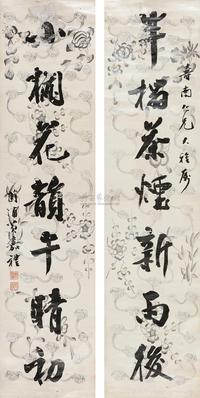 茅檐茶煙新雨後
壽南仁兄大雅屬
小欄花韻午晴初